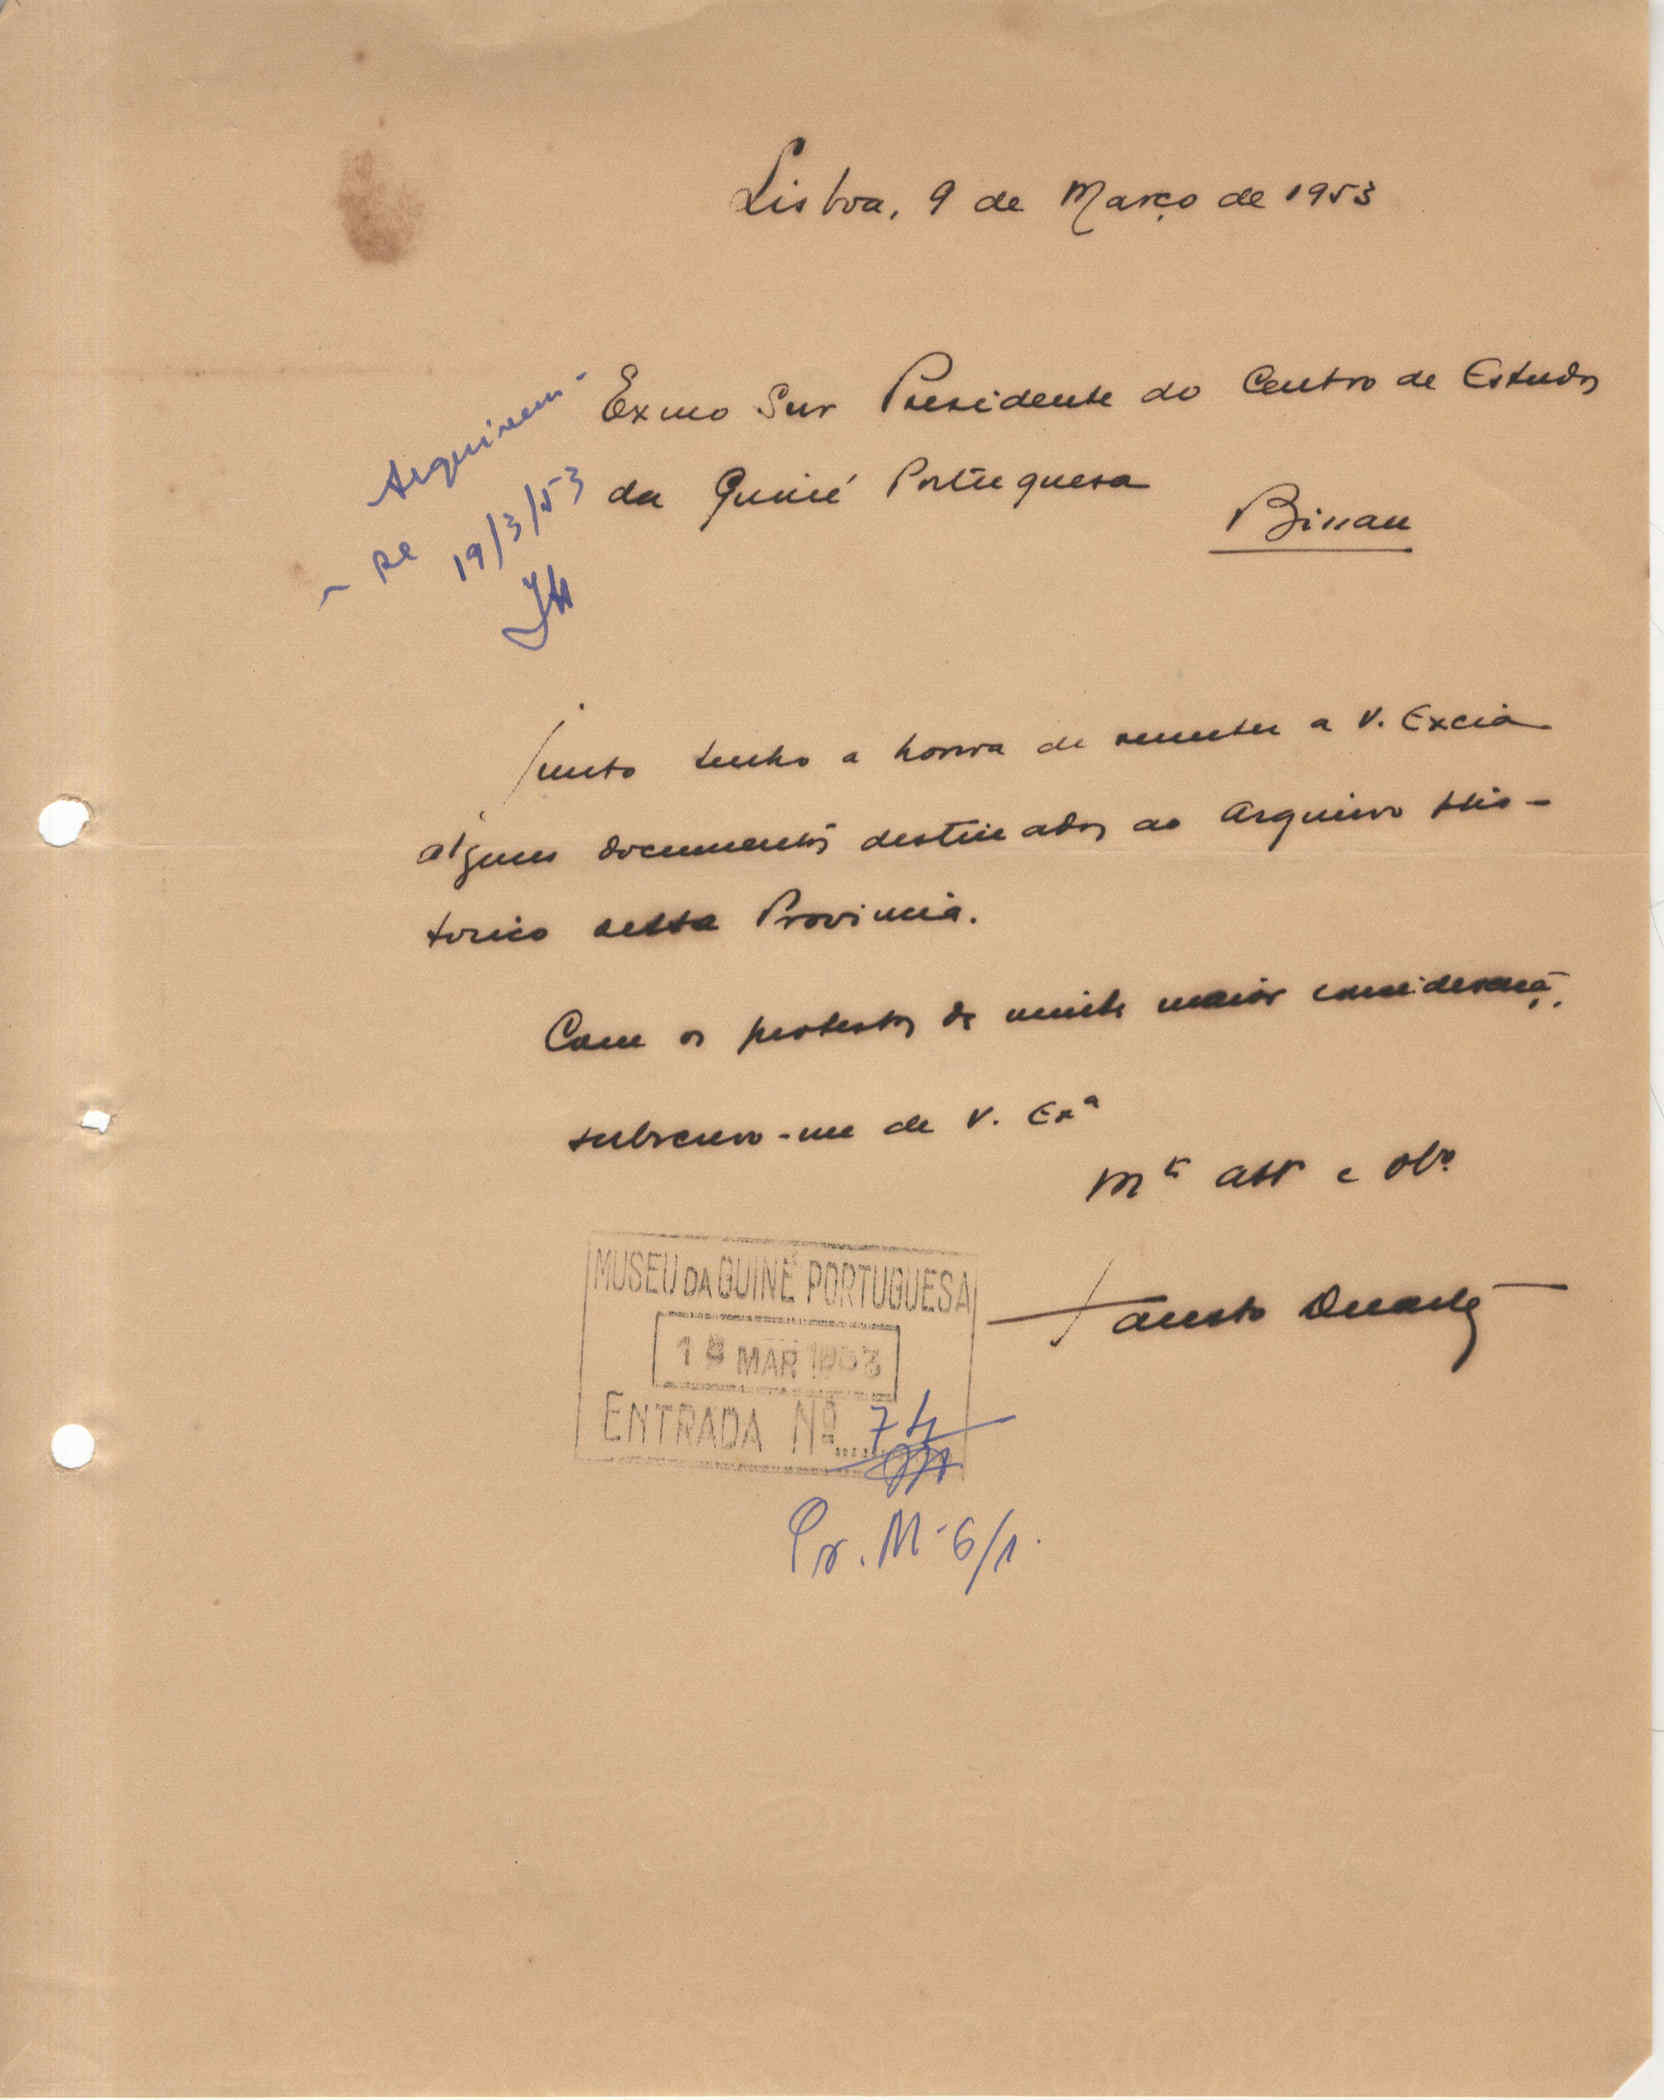 Lisboa, 9 de Março de 1953
Exmo Snr Presidente do Centro de Estudos
da Guiné Portuguesa
Bissau
Arquivem-
- se
19/3/53
Junto tenho a honra de remeter a V. Excia
alguns documentos destinados ao Arquivo His-
torico dessa Provincia.
Com os protestos de muita maior consideração,
subscrevo-me de V. Exª
Mtº attº e obº
Fausto Duarte
MUSEU DA GUINÉ PORTUGUESA
MAR 1953
ENTRADA Nº 74
Pr. M-6/1.